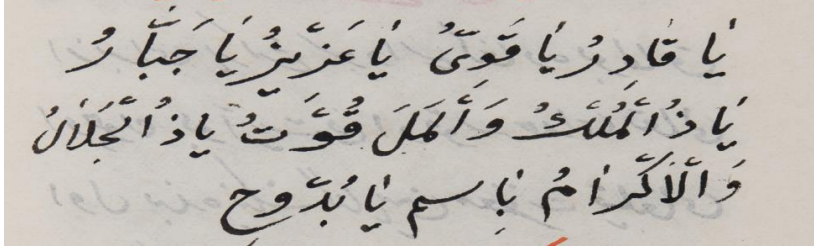 يَا قَادِرُ يَا قَوِىُّ يَا عَزِيْزُ يَا جَبَّارُ
يَا ذُالْمُلْكُ وَالْمَلَ قُوَّتُ يا ذُالْجَلَالُ
وَالْاَكْرَامُ بَاِسم يَا بُدّوح